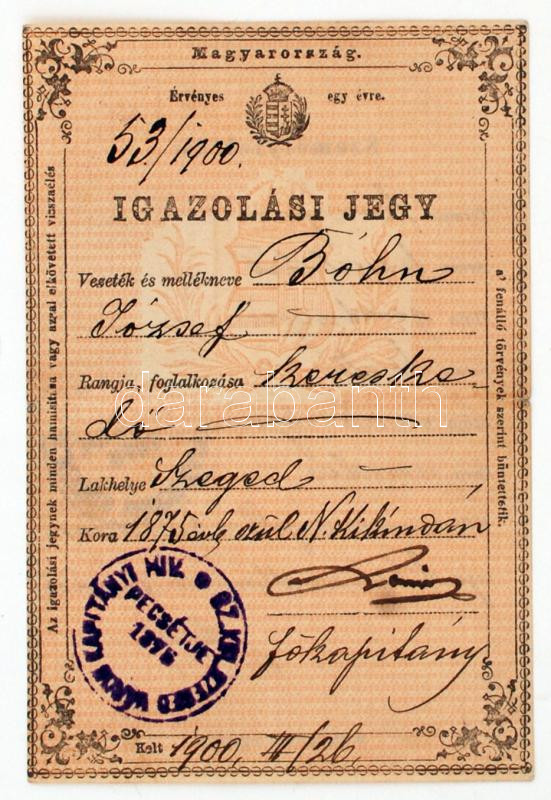 Magyarország.
Érvényes egy évre.
53/1900.
IGAZOLÁSI JEGY
Vezeték és mellékneve Bóhn
József
Rangja, foglalkozása Kereske-
dő
Lakhelye Szeged
Kora 1875 évb szül N. Kikindán
főkapitány
Kelt 1900. III/26.
Az igazolási jegynek minden hamisitása vagy azzal elkövetett visszaélés
a' fenálló törvények szerint büntettetik.
SZ. KIR. SZEGED VÁROS KAPITÁNYI HIV.
PECSÉTJE
1876
darabanth